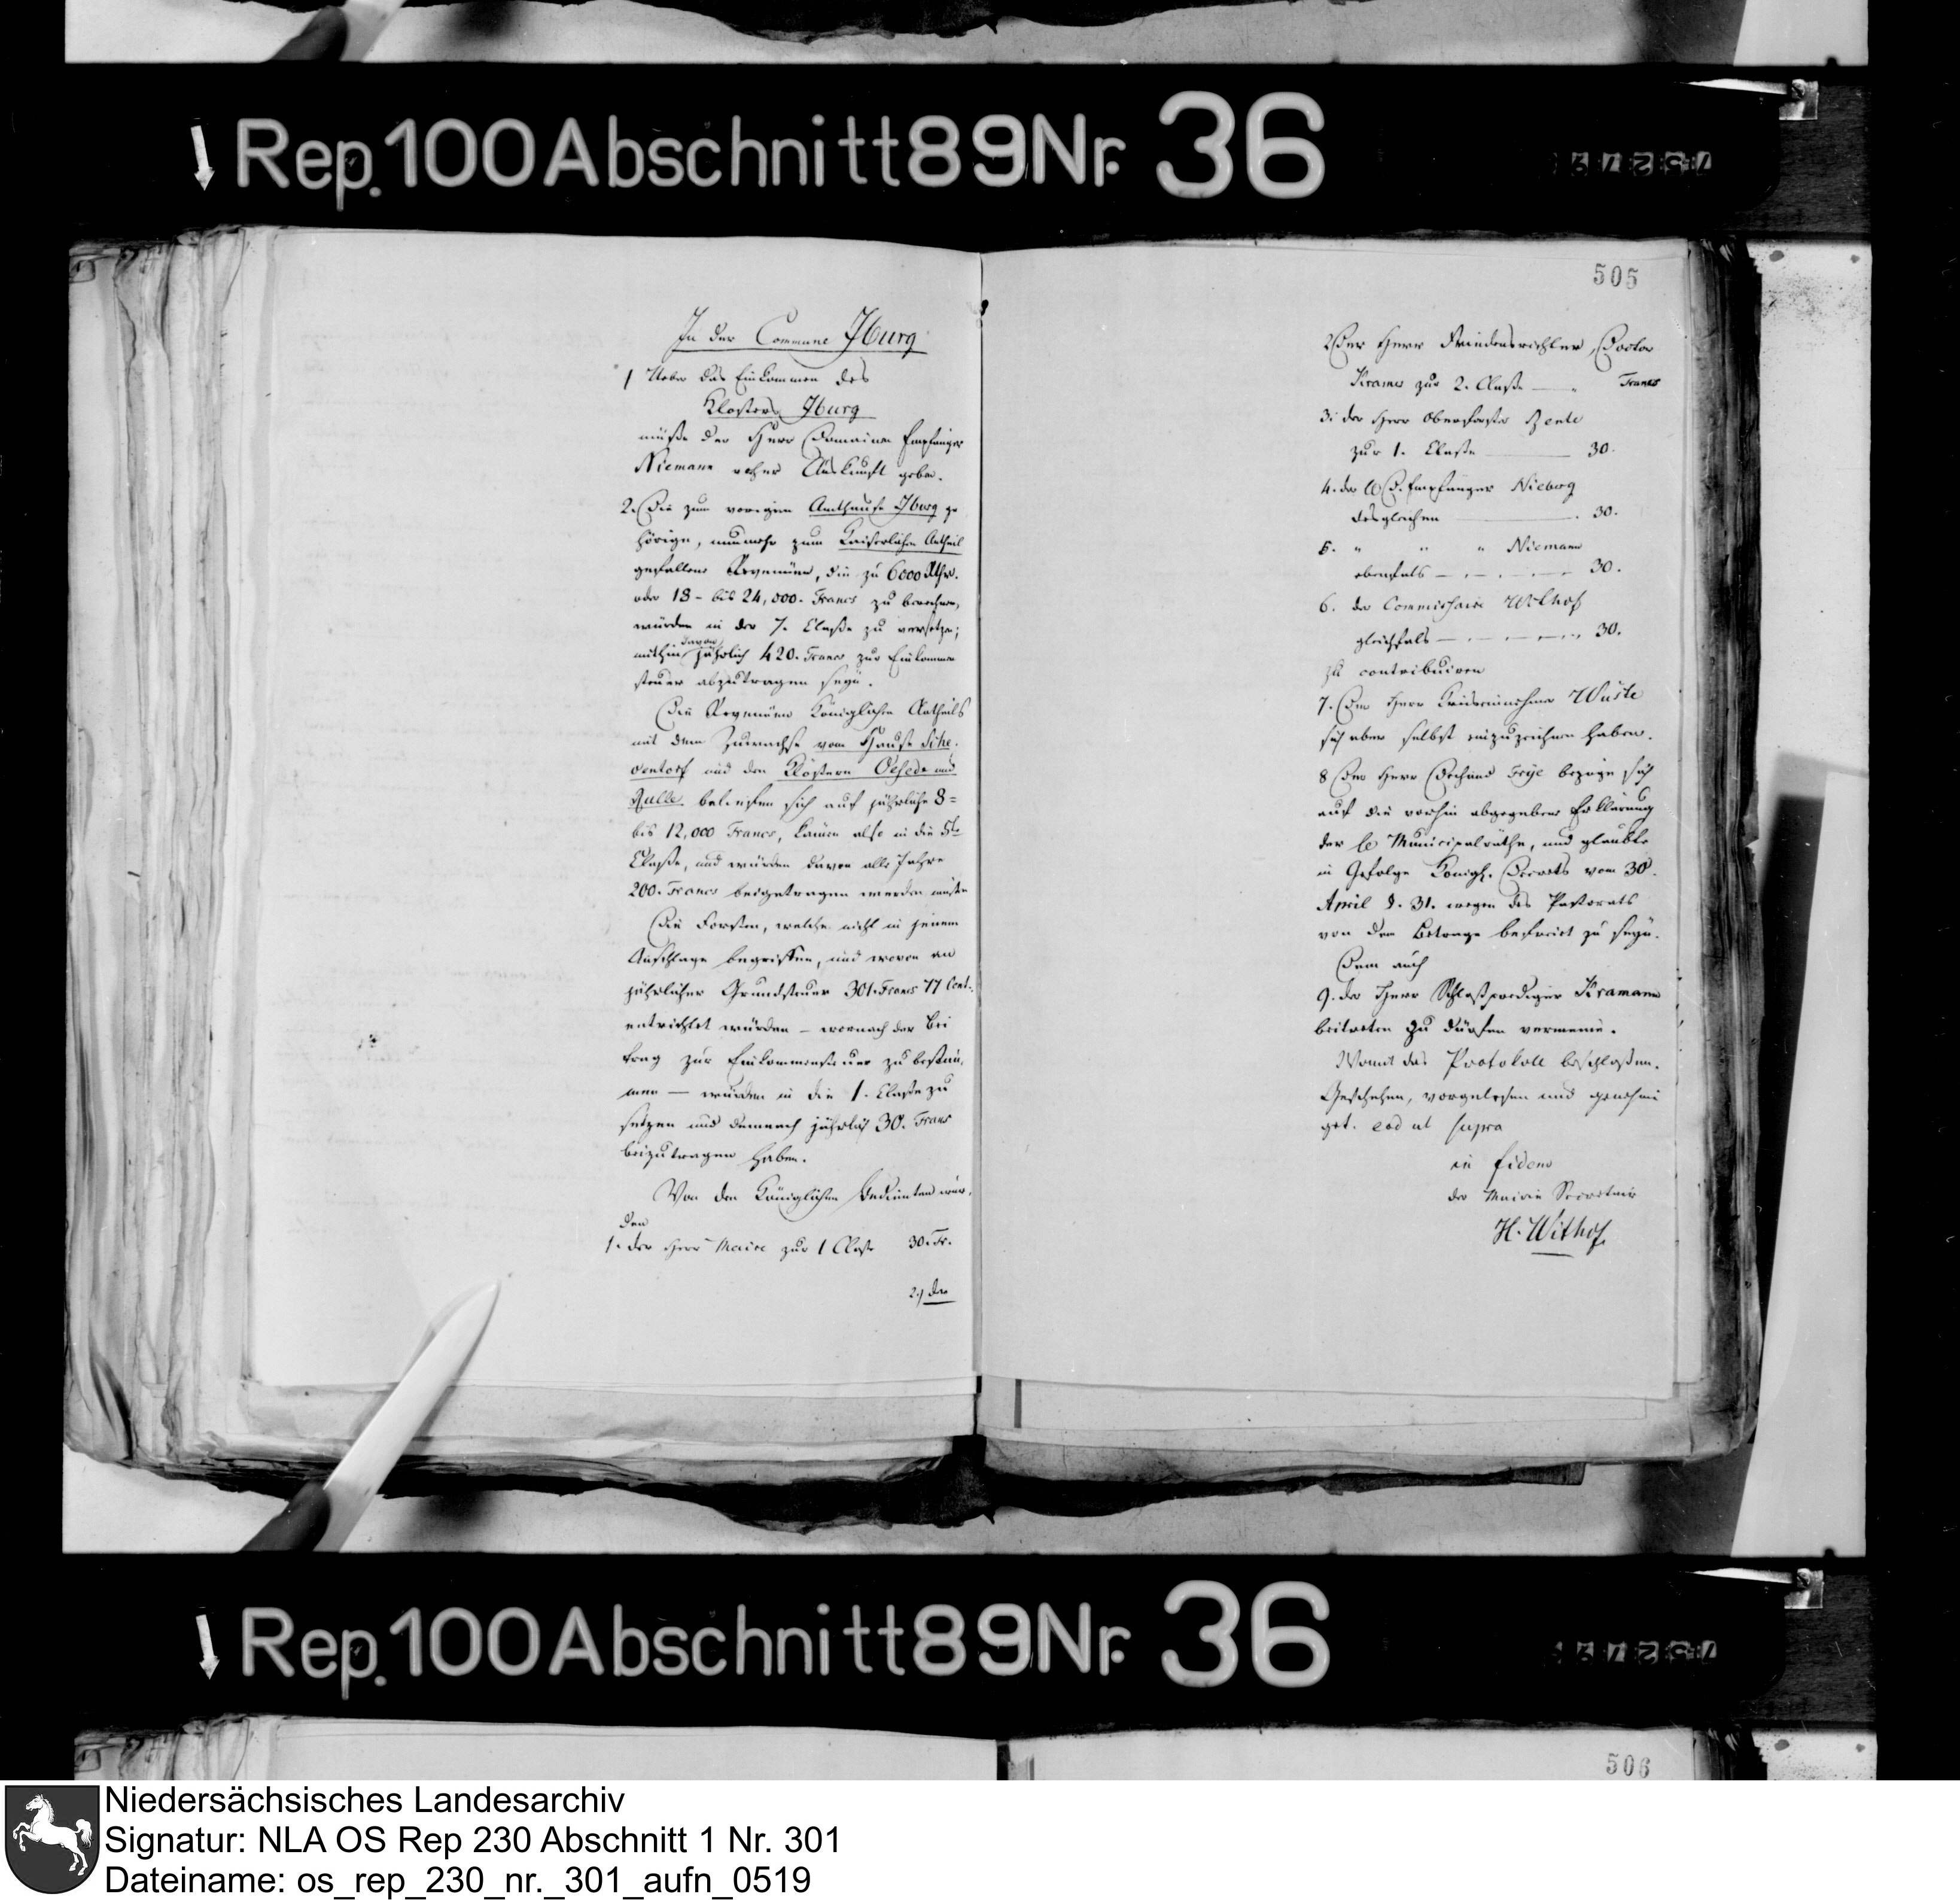 Rep. 100 Abschnitt 89 Nr. 36
In der Commune Iburg
1 Ueber das Einkommen des
Klosters Iburg
müßte der Herr Domainen Empfänger
Niemann näher Auskunft geben.
2. Die zum vorigen Amthause Iburg ge
hörige, nunmehr zum Kaiserlichen Antheil
gefallene Revenüen, die zu 6000 Rthr.
oder 18- bis 24,000. Francs zu berechnen,
würden in der 7. Claße zu versetzen;
mithin davon jährlich 420. Francs zur Einkommen
steuer abzutragen seyn.
Die Revenüen Königlichen Antheils
mit dem Zuwachse vom Hause Sche-
ventorf und den Klöstern Oesede und
Rulle beliefen sich auf jährliche 8=
bis 12,000 Francs, kämen also in die 5te
Claße, und würden davon alle Jahre
200. Francs beigetragen werden müßen
Die Forsten, welche nicht in jenem
Anschlage begriffen, und wovon an
jährlicher Grundsteuer 301. Francs 77 Cent.
entrichtet würden - wornach der Bei
trag zur Einkommensteuer zu bestim-
men — würden in die 1. Claße zu
setzen und demnach jährlich 30. Francs
beizutragen haben.
Von den Königlichen Bedienten wür-
den
1. der Herr Maire zur 1 Claße 30. Fr.
2.) der
505
2 Der Herr Friedensrichter, Doctor
Kramer zur 2. Claße — " Francs
3. der Herr Oberförster Zente
zur 1. Claße — 30.
4. der Empfänger Nieberg
desgleichen — 30.
5. " " " Niemann
ebenfals — 30.
6. der Commissaire Withof
gleichfals — 30.
zu contribuiren
7. Der Herr Kreiseinnehmer Wüste
sich aber selbst einzuzeichnen haben.
8 Der Herr Dechand Frye bezöge sich
auf die vorhin abgegebene Erklärung
der Municipalräthe, und glaubte
in Gefolge Königl. Decrets vom 30.
April §. 31. wegen des Pastorats
von dem Betrage befreiet zu seyn.
Dem auch
9. der Herr Schloßprediger Kramann
beitreten zu dürfen vermeine.
Womit das Protokoll beschloßen.
Geschehen, vorgelesen und genehmi
get. eod ut supra
in fidem
der Mairie Secretair
H. Withof
Rep. 100 Abschnitt 89 Nr. 36
506
Niedersächsisches Landesarchiv
Signatur: NLA OS Rep 230 Abschnitt 1 Nr. 301
Dateiname: os_rep_230_nr._301_aufn_0519